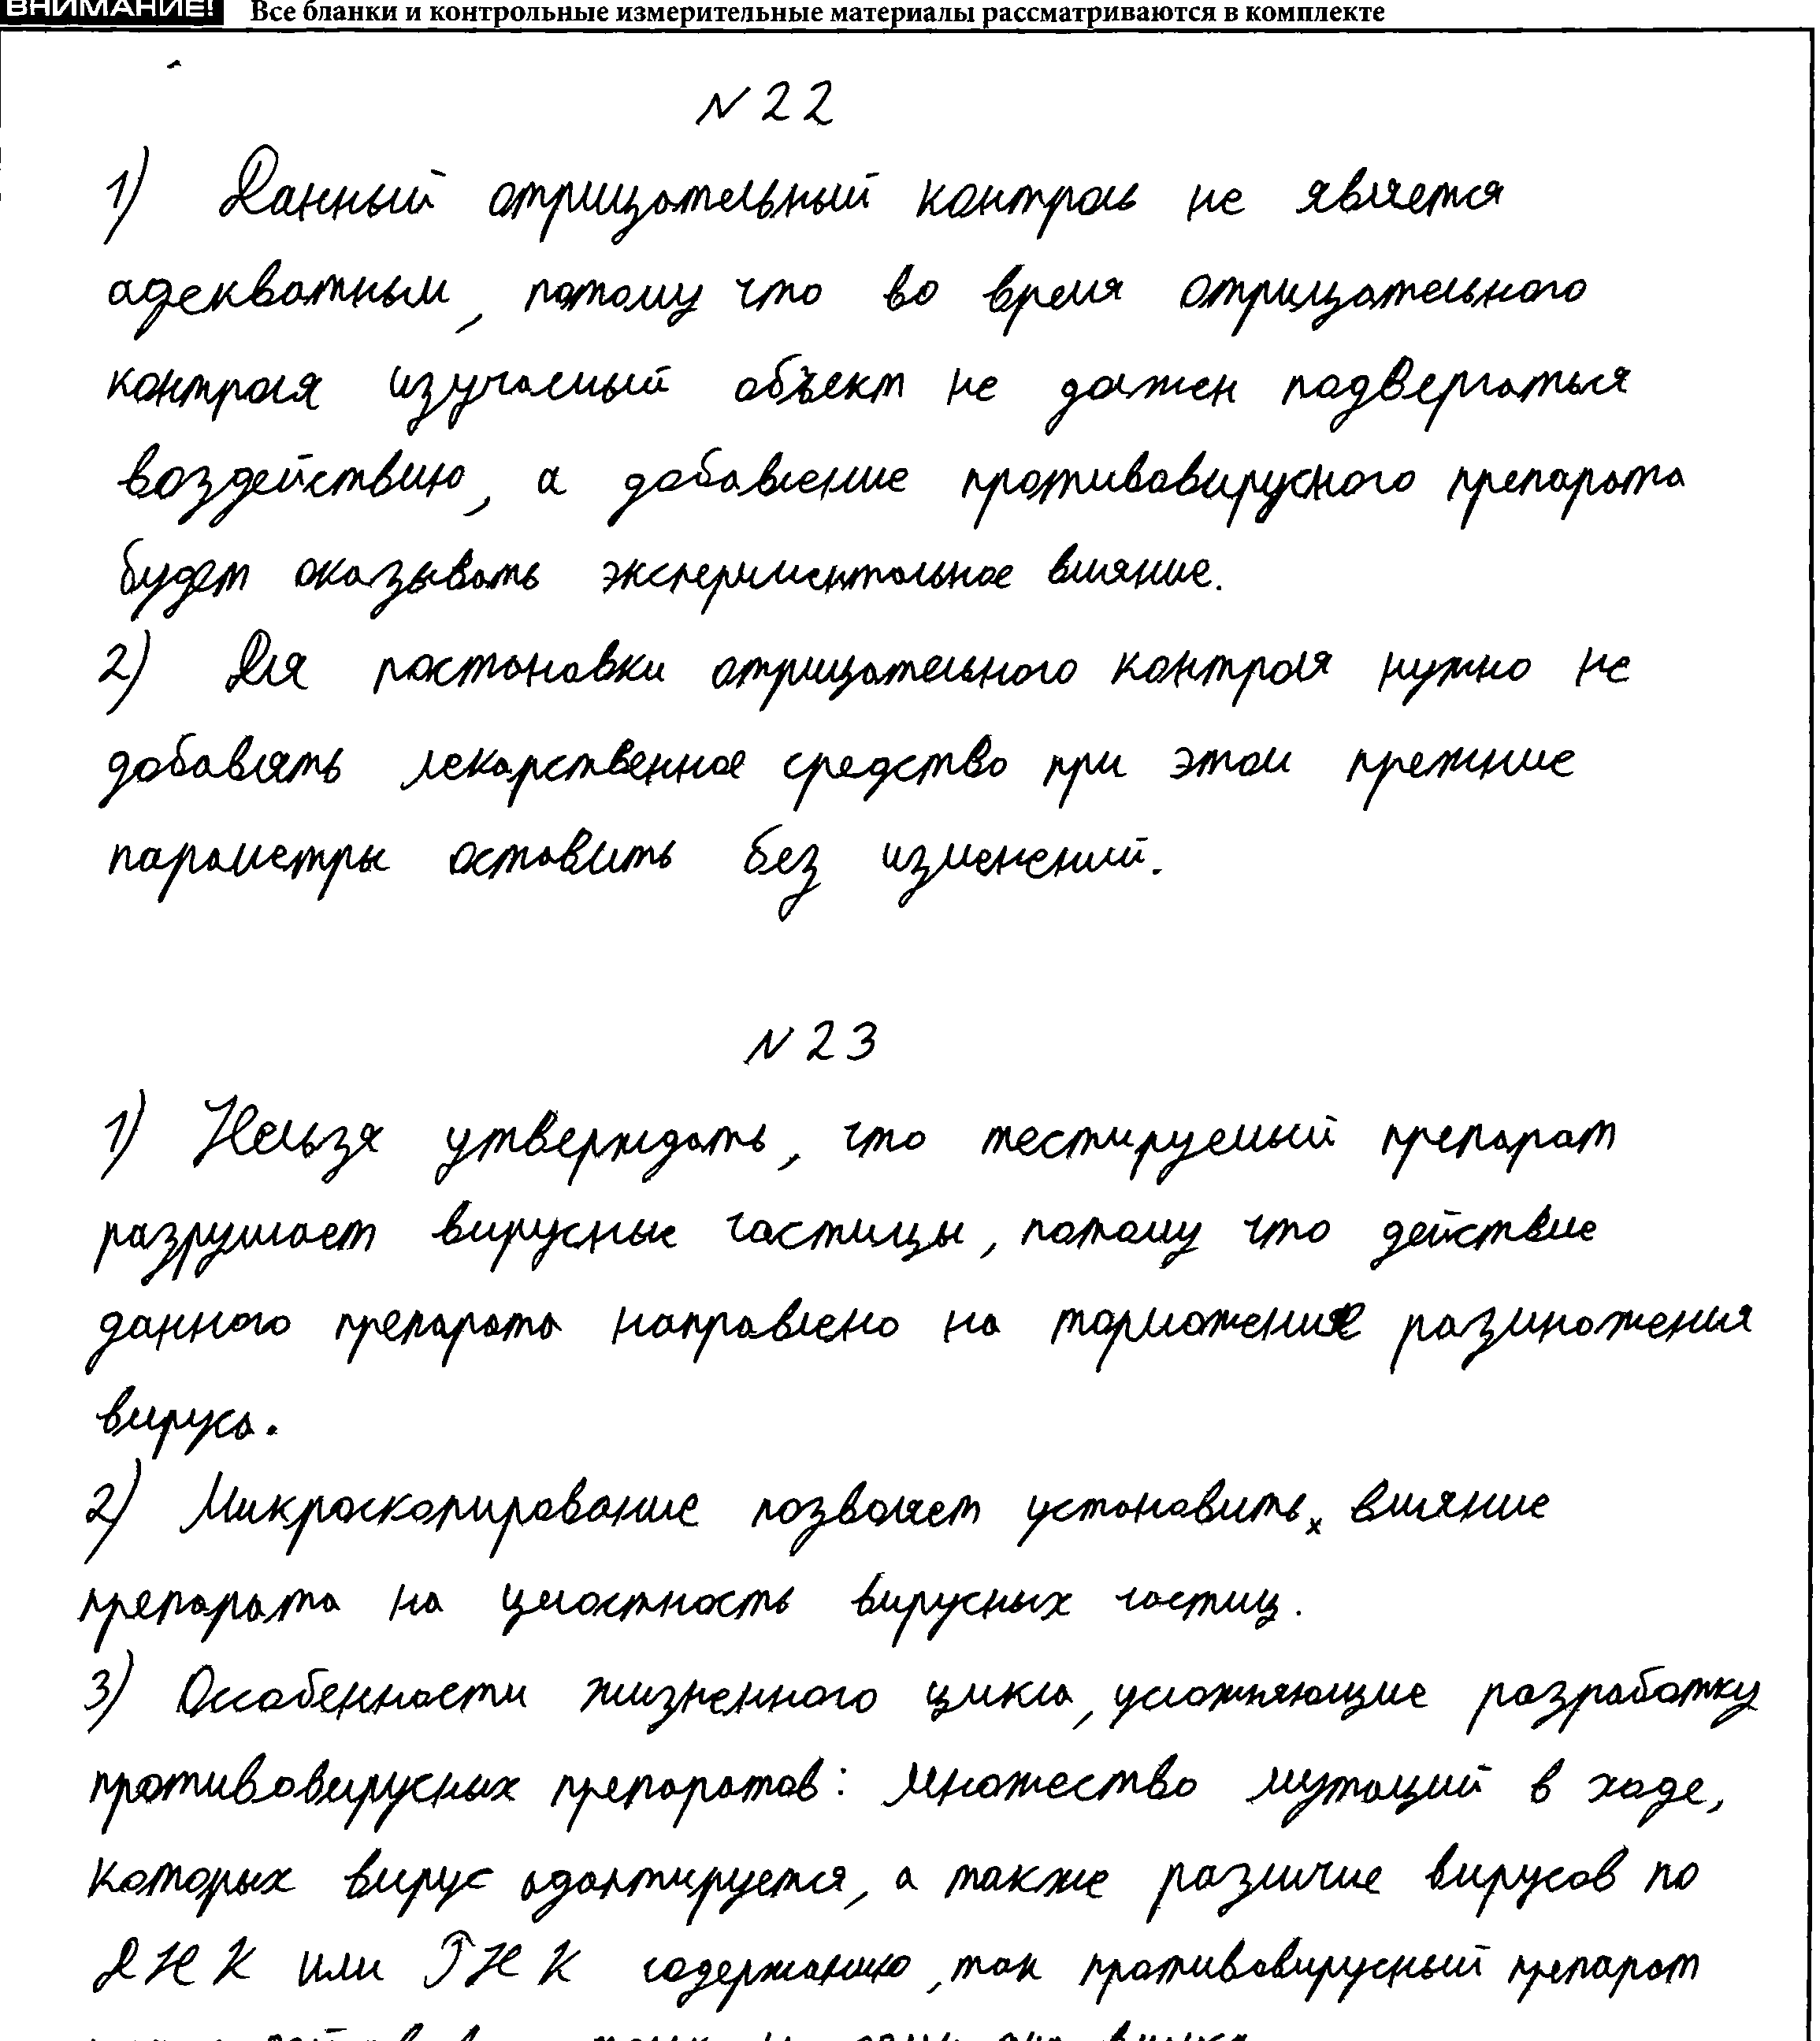 ВНИМАНИЕ! Все бланки и контрольные измерительные материалы рассматриваются в комплекте
N 22
1) Данный отрицательный контроль не является
адекватным, потому что во время отрицательного
контроля изучаемый объект не должен подвергаться
воздействию, а добавление противовирусного препарата
будет оказывать экспериментальное влияние.
2) Для постановки отрицательного контроля нужно не
добавлять лекарственное средство при этом прежние
параметры оставить без изменений.
N 23
1) Нельзя утверждать, что тестируемый препарат
разрушает вирусные частицы, потому что действие
данного препарата направлено на торможение размножения
вируса.
2) Микроскопирование позволяет установить влияние
препарата на целостность вирусных частиц.
3) Особенности жизненного цикла, усложняющие разработку
противовирусных препаратов: множество мутаций в ходе,
которых вирус адаптируется, а также различие вирусов по
ДНК или РНК содержанию, так противовирусный препарат